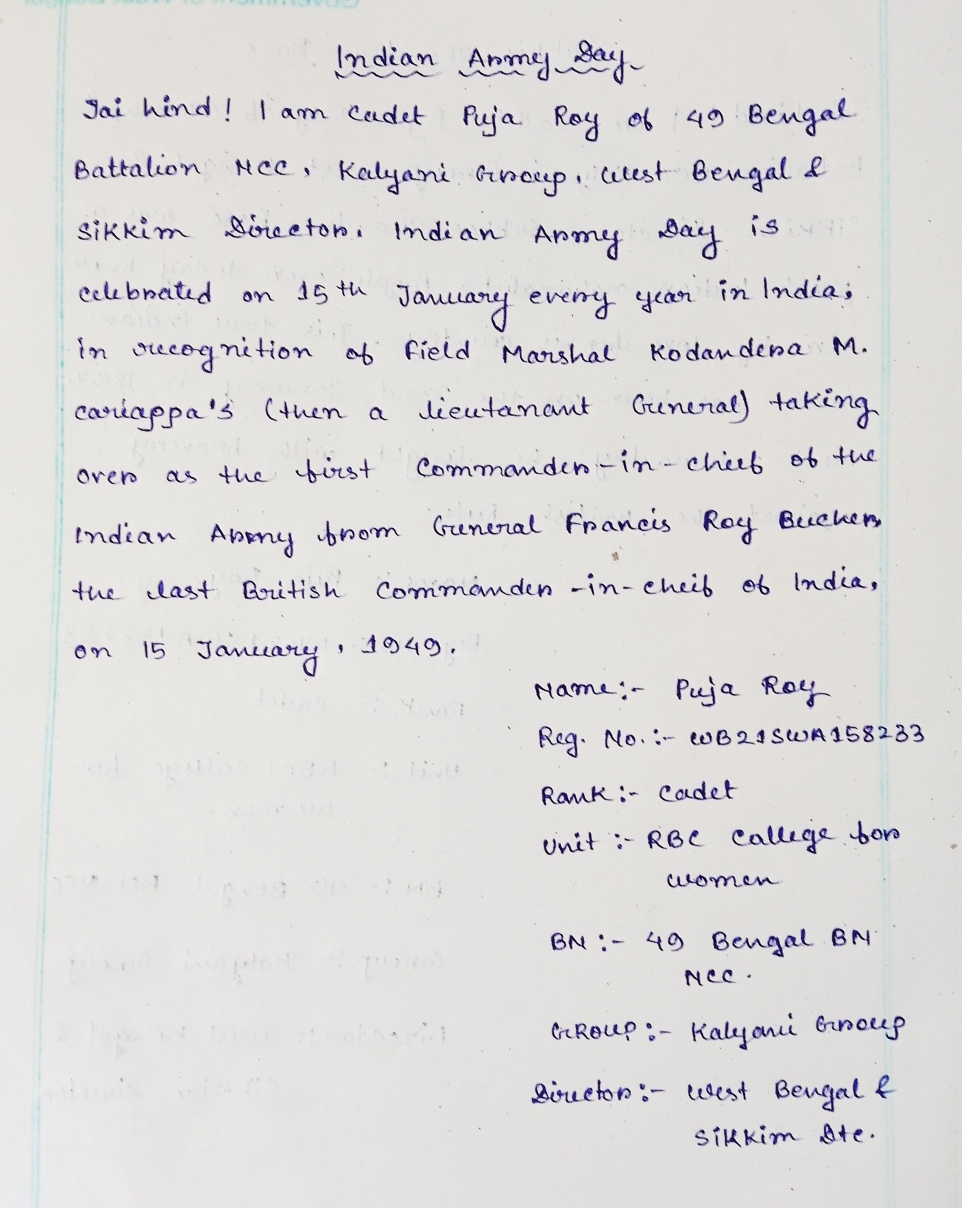 Indian Army Day
Jai hind! I am Cadet Puja Roy of 49 Bengal
Battalion NCC, Kalyani Group, West Bengal &
Sikkim Director. Indian Army Day is
celebrated on 15th January every year in India,
in recognition of Field Marshal Kodandera M.
cariappa's (then a lieutanant General) taking
over as the first Commander-in-chief of the
Indian Army from General Francis Roy Bucher,
the last British Commander-in-cheif of India,
on 15 January, 1949.
Name:- Puja Roy
Reg. No.:- WB21SWA158233
Rank:- Cadet
Unit:- RBC Callege for
women
BN:- 49 Bengal BN
NCC.
GROUP:- Kalyani Group
Director:- West Bengal &
Sikkim Dte.